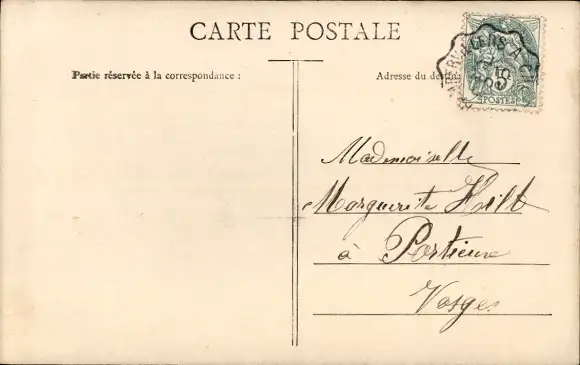 CARTE POSTALE
Partie réservée à la correspondance :
Adresse du
5
POSTES
Mademoiselle
Marguerite Hilt
à Portieux
Vosges